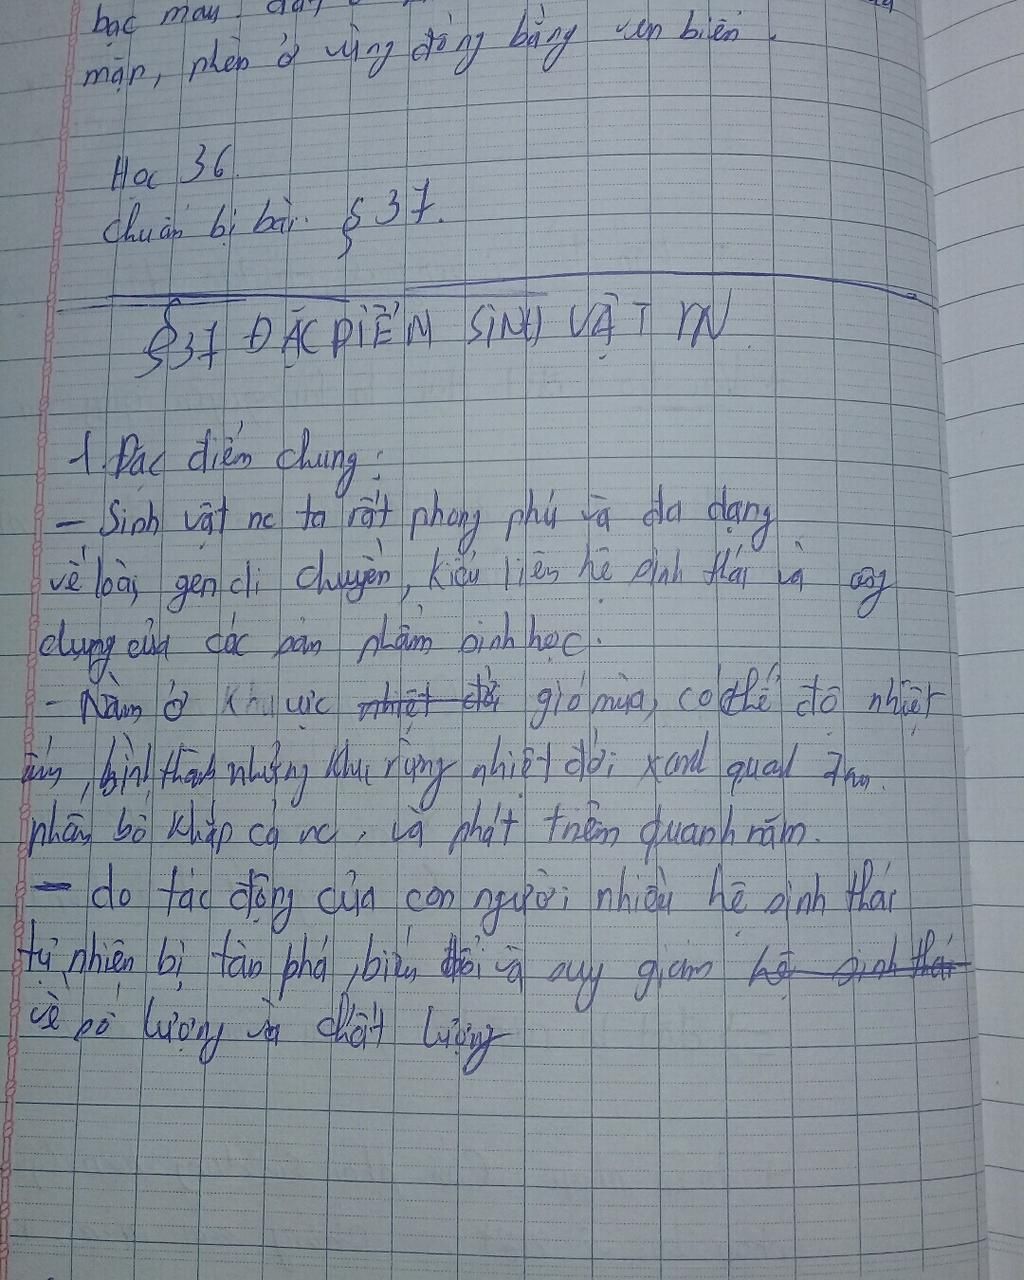 bạc màu
mặn, phèn ở vùng đồng bằng ven biển.
Học 36.
chuẩn bị bài. § 37.
§37 ĐẶC ĐIỂM SINH VẬT VN
1. Đặc điểm chung:
- Sinh vật nc ta rất phong phú và đa dạng
về loài, gen di chuyền, kiểu liên hệ sinh thái và công
dụng của các sản phẩm sinh học.
- Nằm ở khu vực nhiệt đới gió mùa, có thế độ nhiệt
ẩm, hình thành những khu rừng nhiệt đới xanh quanh
phân bố khắp cả nc, và phát triển quanh năm.
- do tác động của con người nhiều hệ sinh thái
tự nhiên bị tàn phá, biến đổi và suy giảm hệ sinh thái
về số lượng và chất lượng